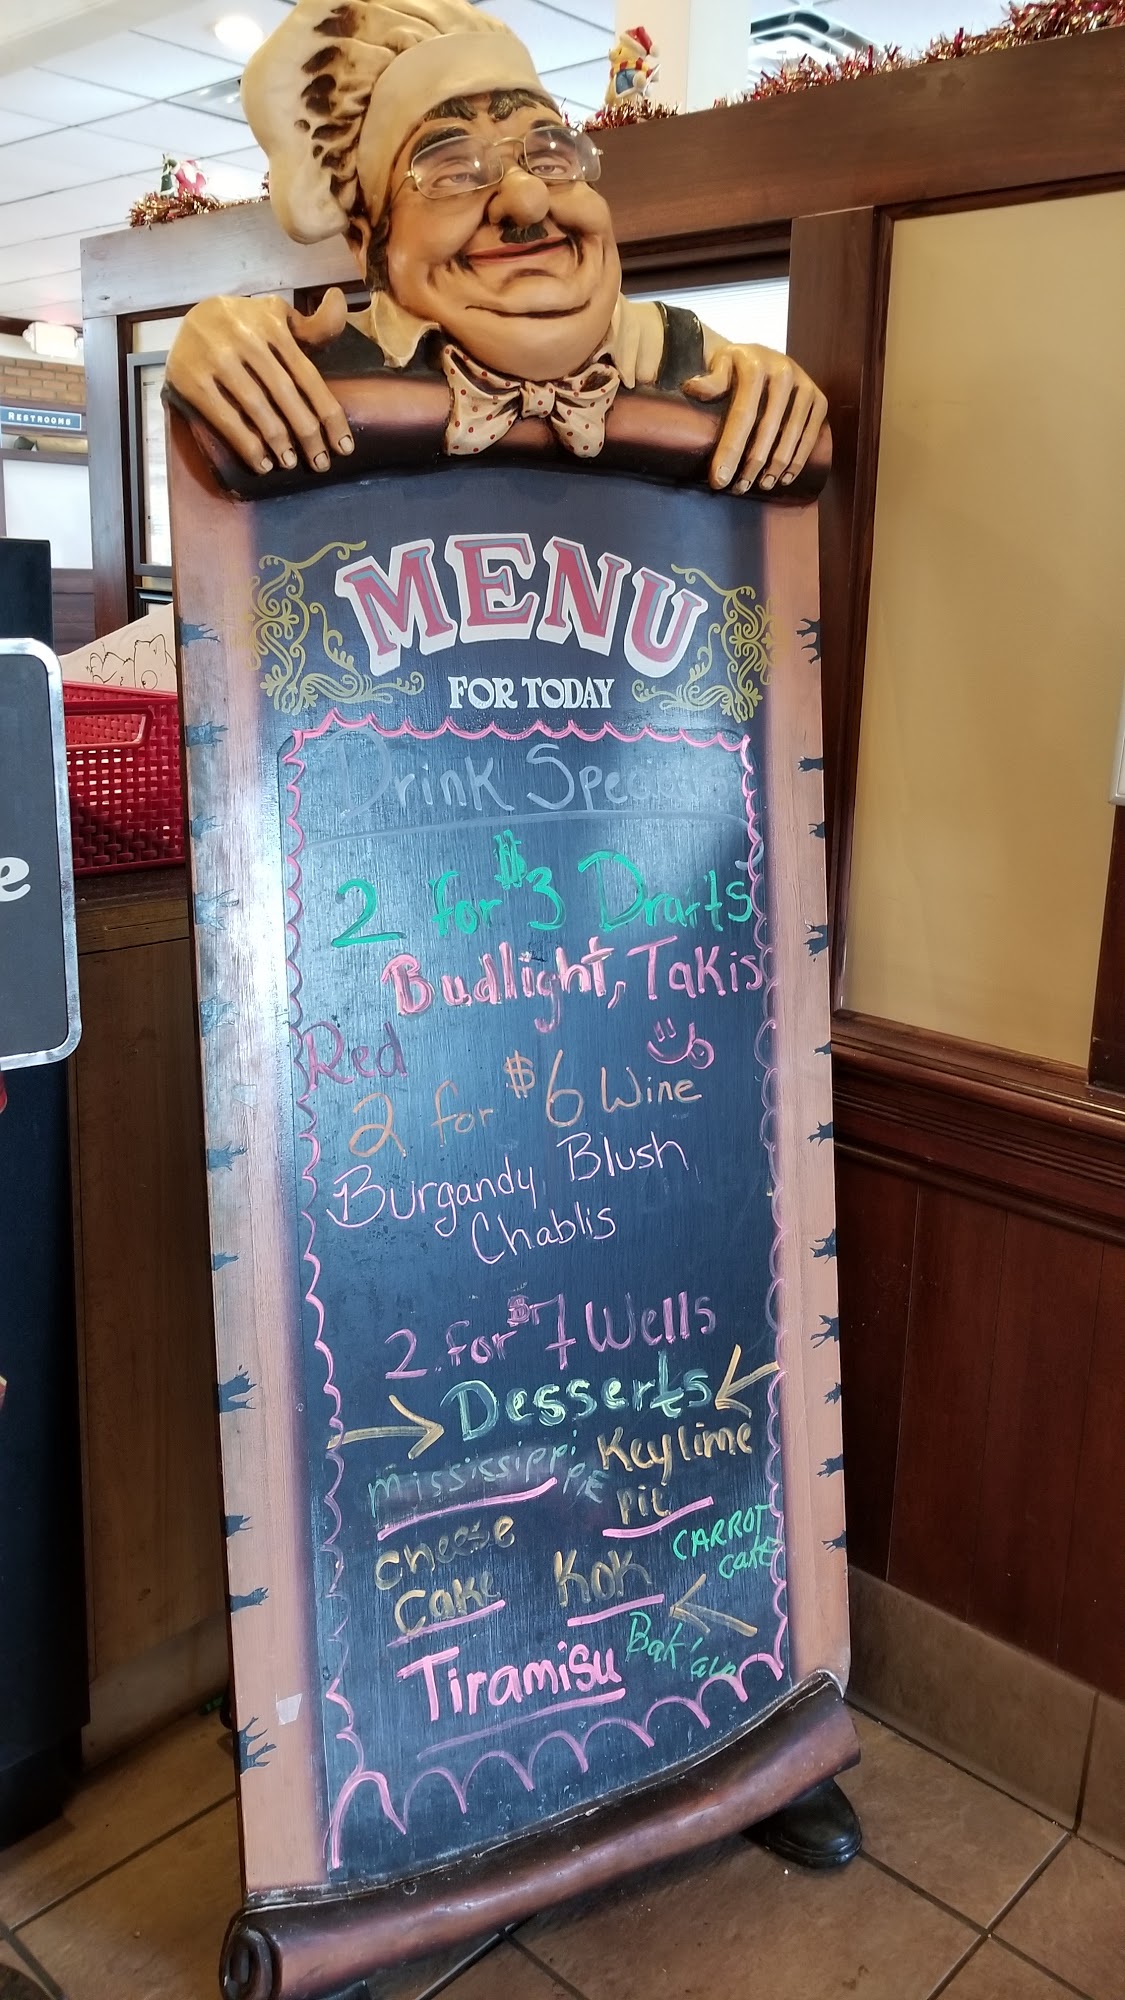 RESTROOMS
MENU
FOR TODAY
Drink Specials
2 for $3 Drafts
Budlight, Takis
Red
2 for $6 Wine
Burgandy, Blush
Chablis
2 for $7 Wells
Desserts
Mississippi PIE
Keylime
PiE
Cheese
Cake
KOK
CARROT
CakE
Tiramisu
e